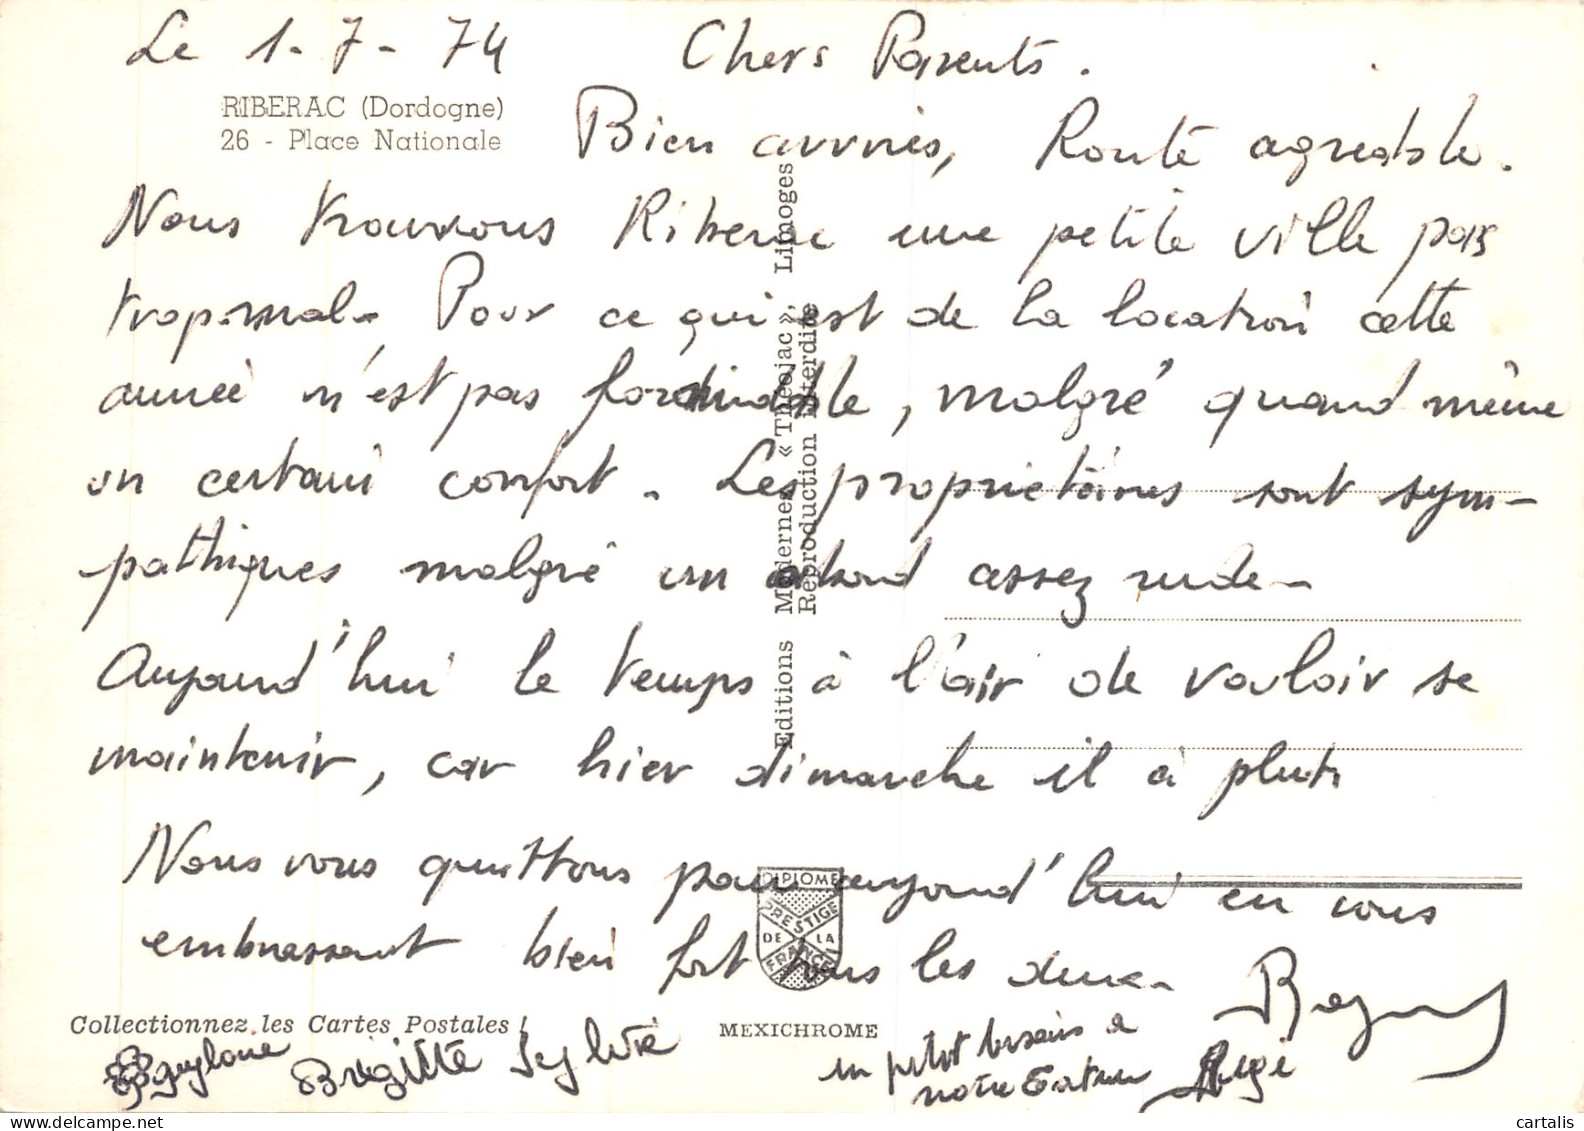 Le 1-7-74 Chers Parents.
RIBERAC (Dordogne)
26 - Place Nationale
Bien arrivés, Route agréable.
Nous trouvons Riberac une petite ville pas
trop mal. Pour ce qui est de la location cette
année n'est pas formidable, malgré quand même
un certain confort. Les propriétaires sont sym-
pathiques malgré un abord assez rude.
Aujourd'hui le temps à l'air de vouloir se
maintenir, car hier dimanche il à plut.
Nous vous quittons pour aujourd'hui en vous
embrassant bien fort tous les deux.
Editions Modernes « Théojac », Limoges
Reproduction Interdite
DIPLOME
PRESTIGE
DE LA
FRANCE
Collectionnez les Cartes Postales !
MEXICHROME
Brigitte Sylvie
un petit
notre
cartalis